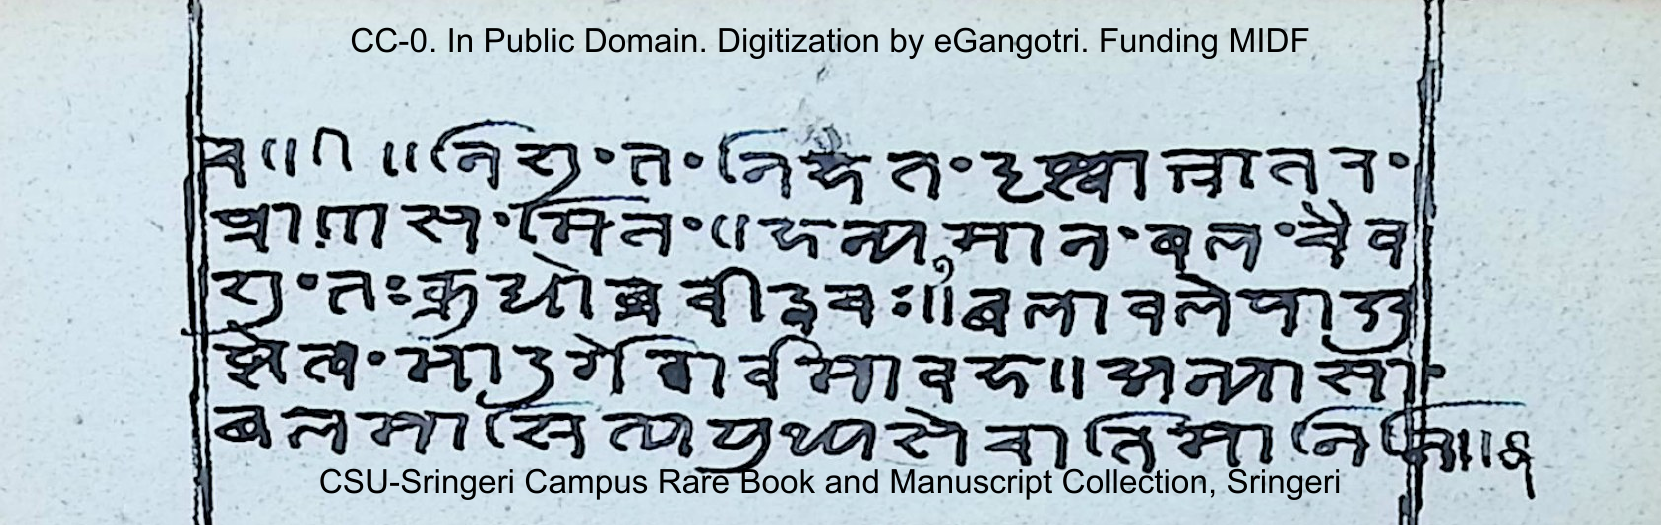 CC-0. In Public Domain. Digitization by eGangotri. Funding MIDF
च ॥१॥ निशुंतं निहतं दृष्ट्वा भ्रातरं
प्राणसंमितं ॥ हन्यमानं बलं चैव
शुंतः क्रुद्धोब्रवीद्वचः ॥ बलावलेपाद्दु
ष्टे त्वं मा दुर्गे गर्वमावह ॥ अन्यासां
बलमाश्रित्य युध्यसे चातिमानिनी ॥२
CSU-Sringeri Campus Rare Book and Manuscript Collection, Sringeri